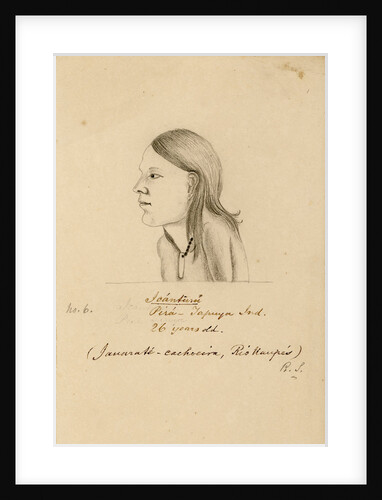 No. 6.
Ioánturi
Pirá-Tapuya Ind.
26 years old.
(Jauaraté-cachoeira, Rio Uaupés)
R. S.